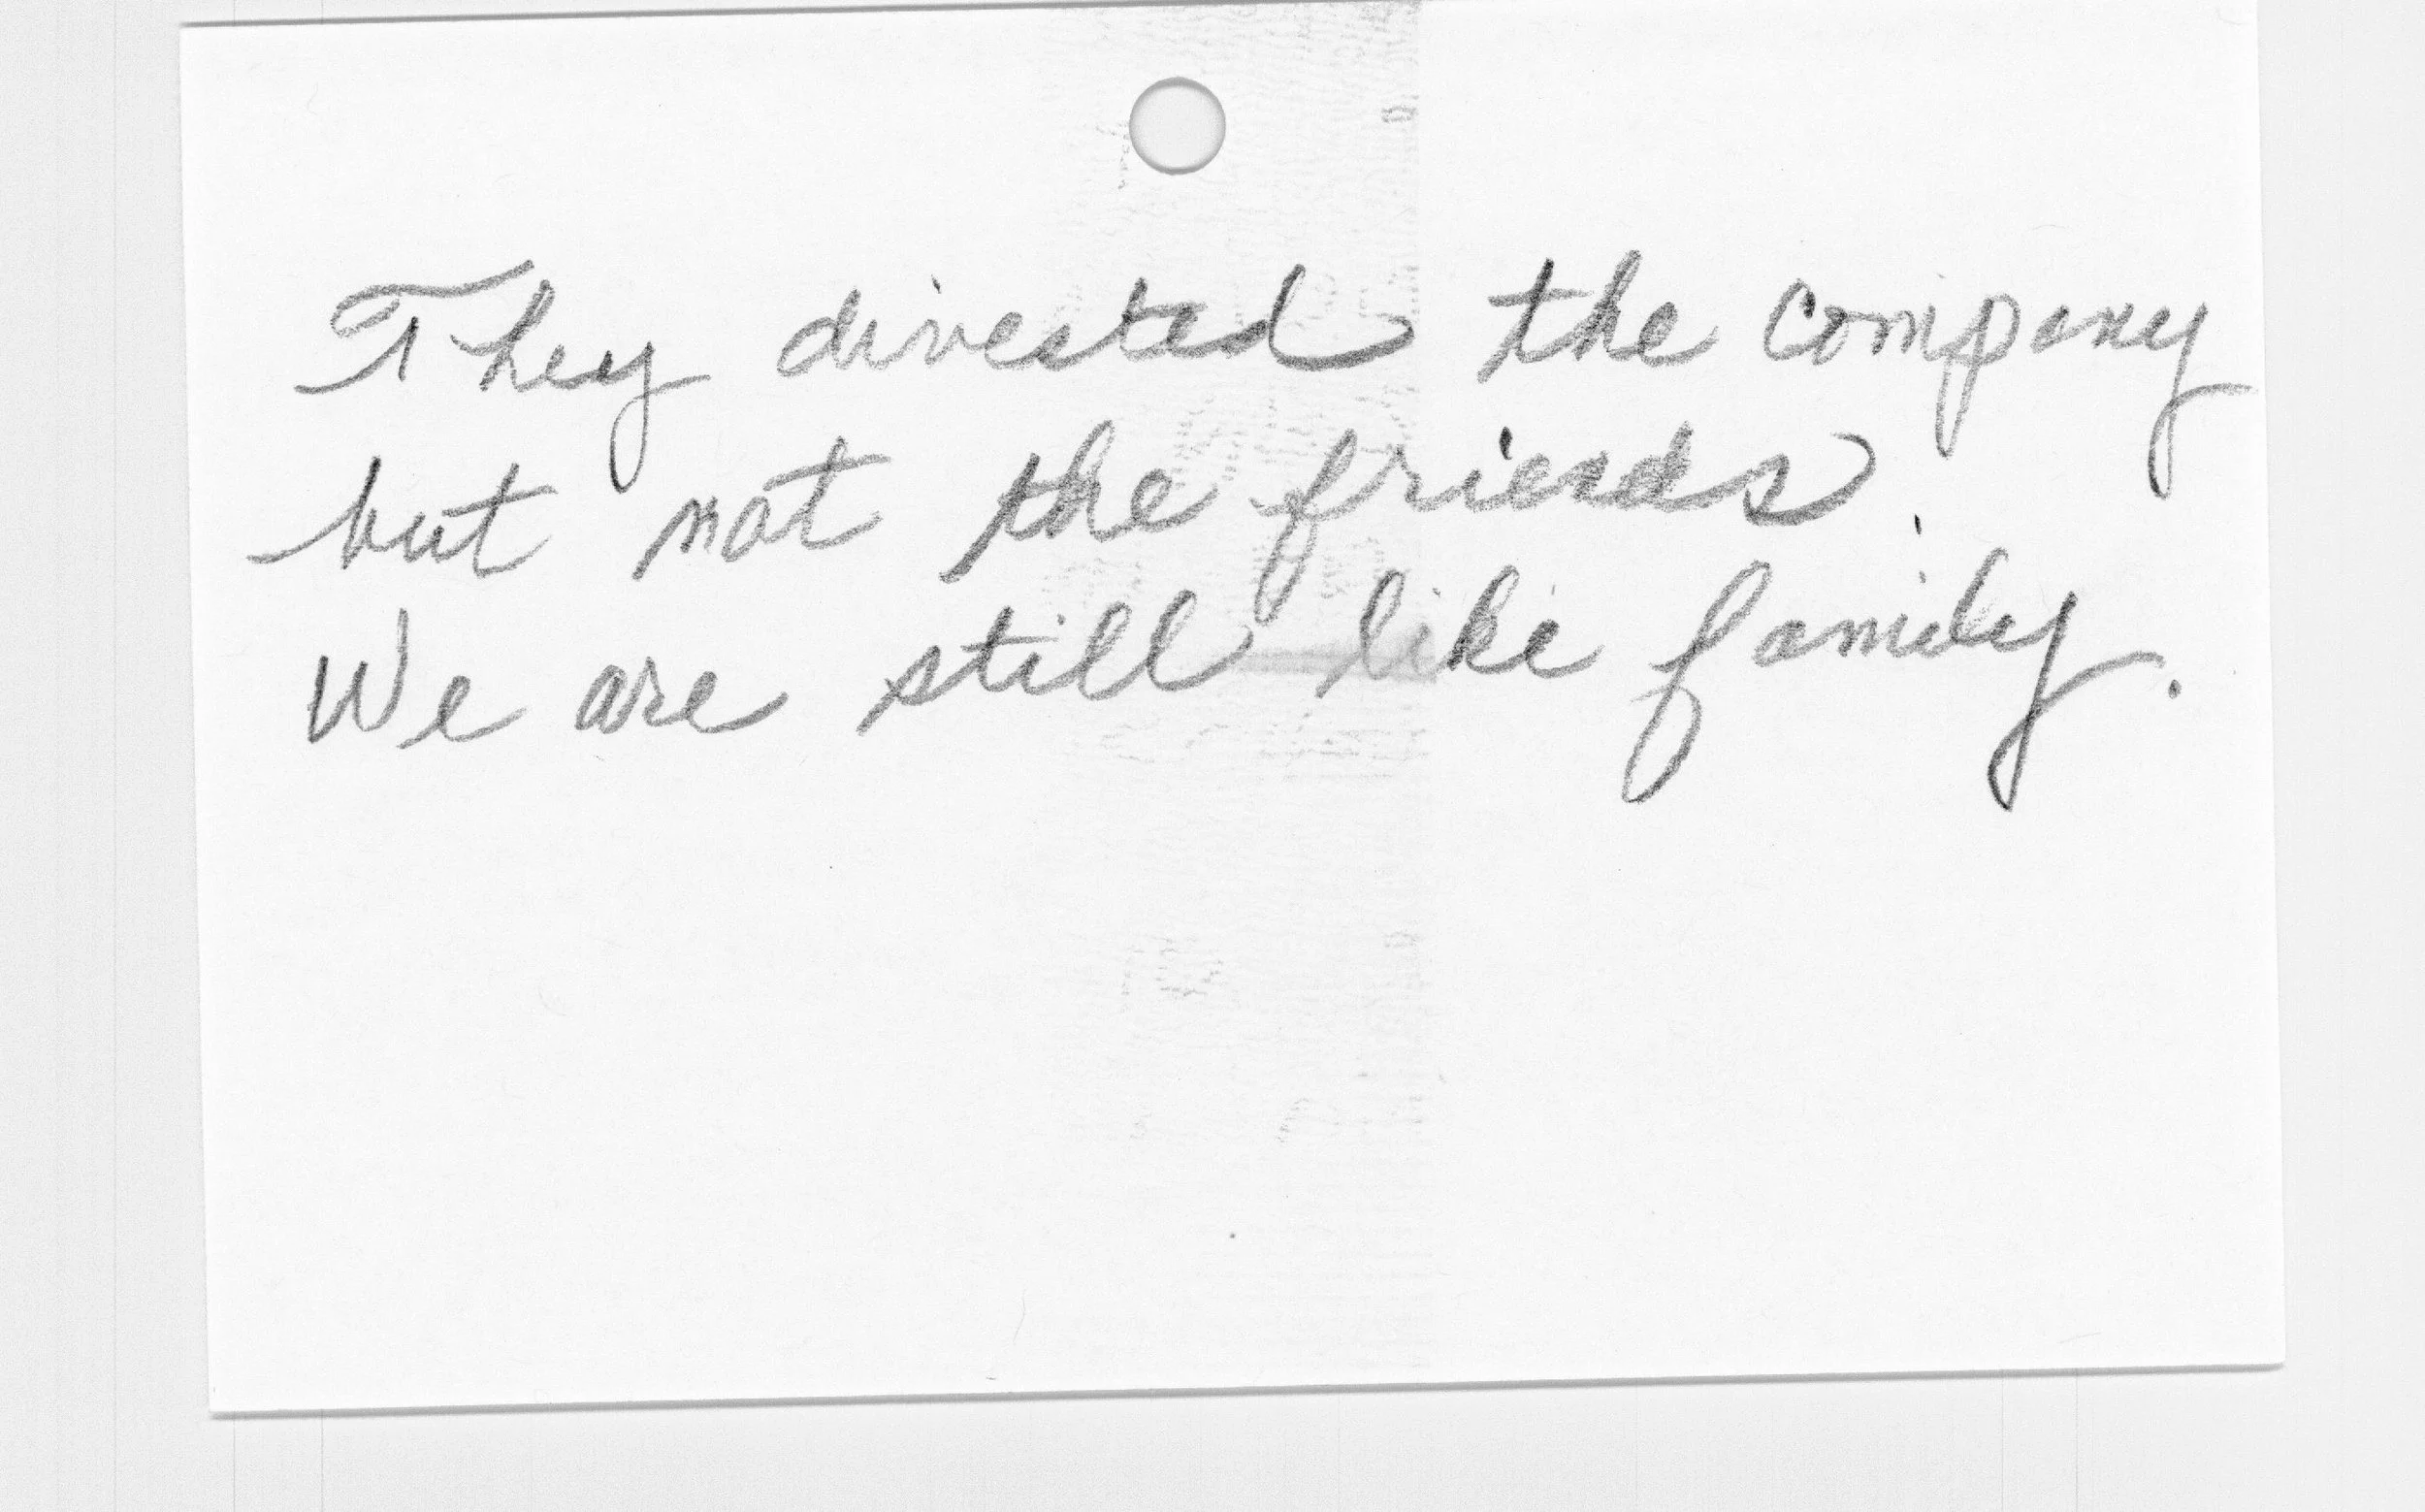 They divested the company
but not the friends.
We are still like family.